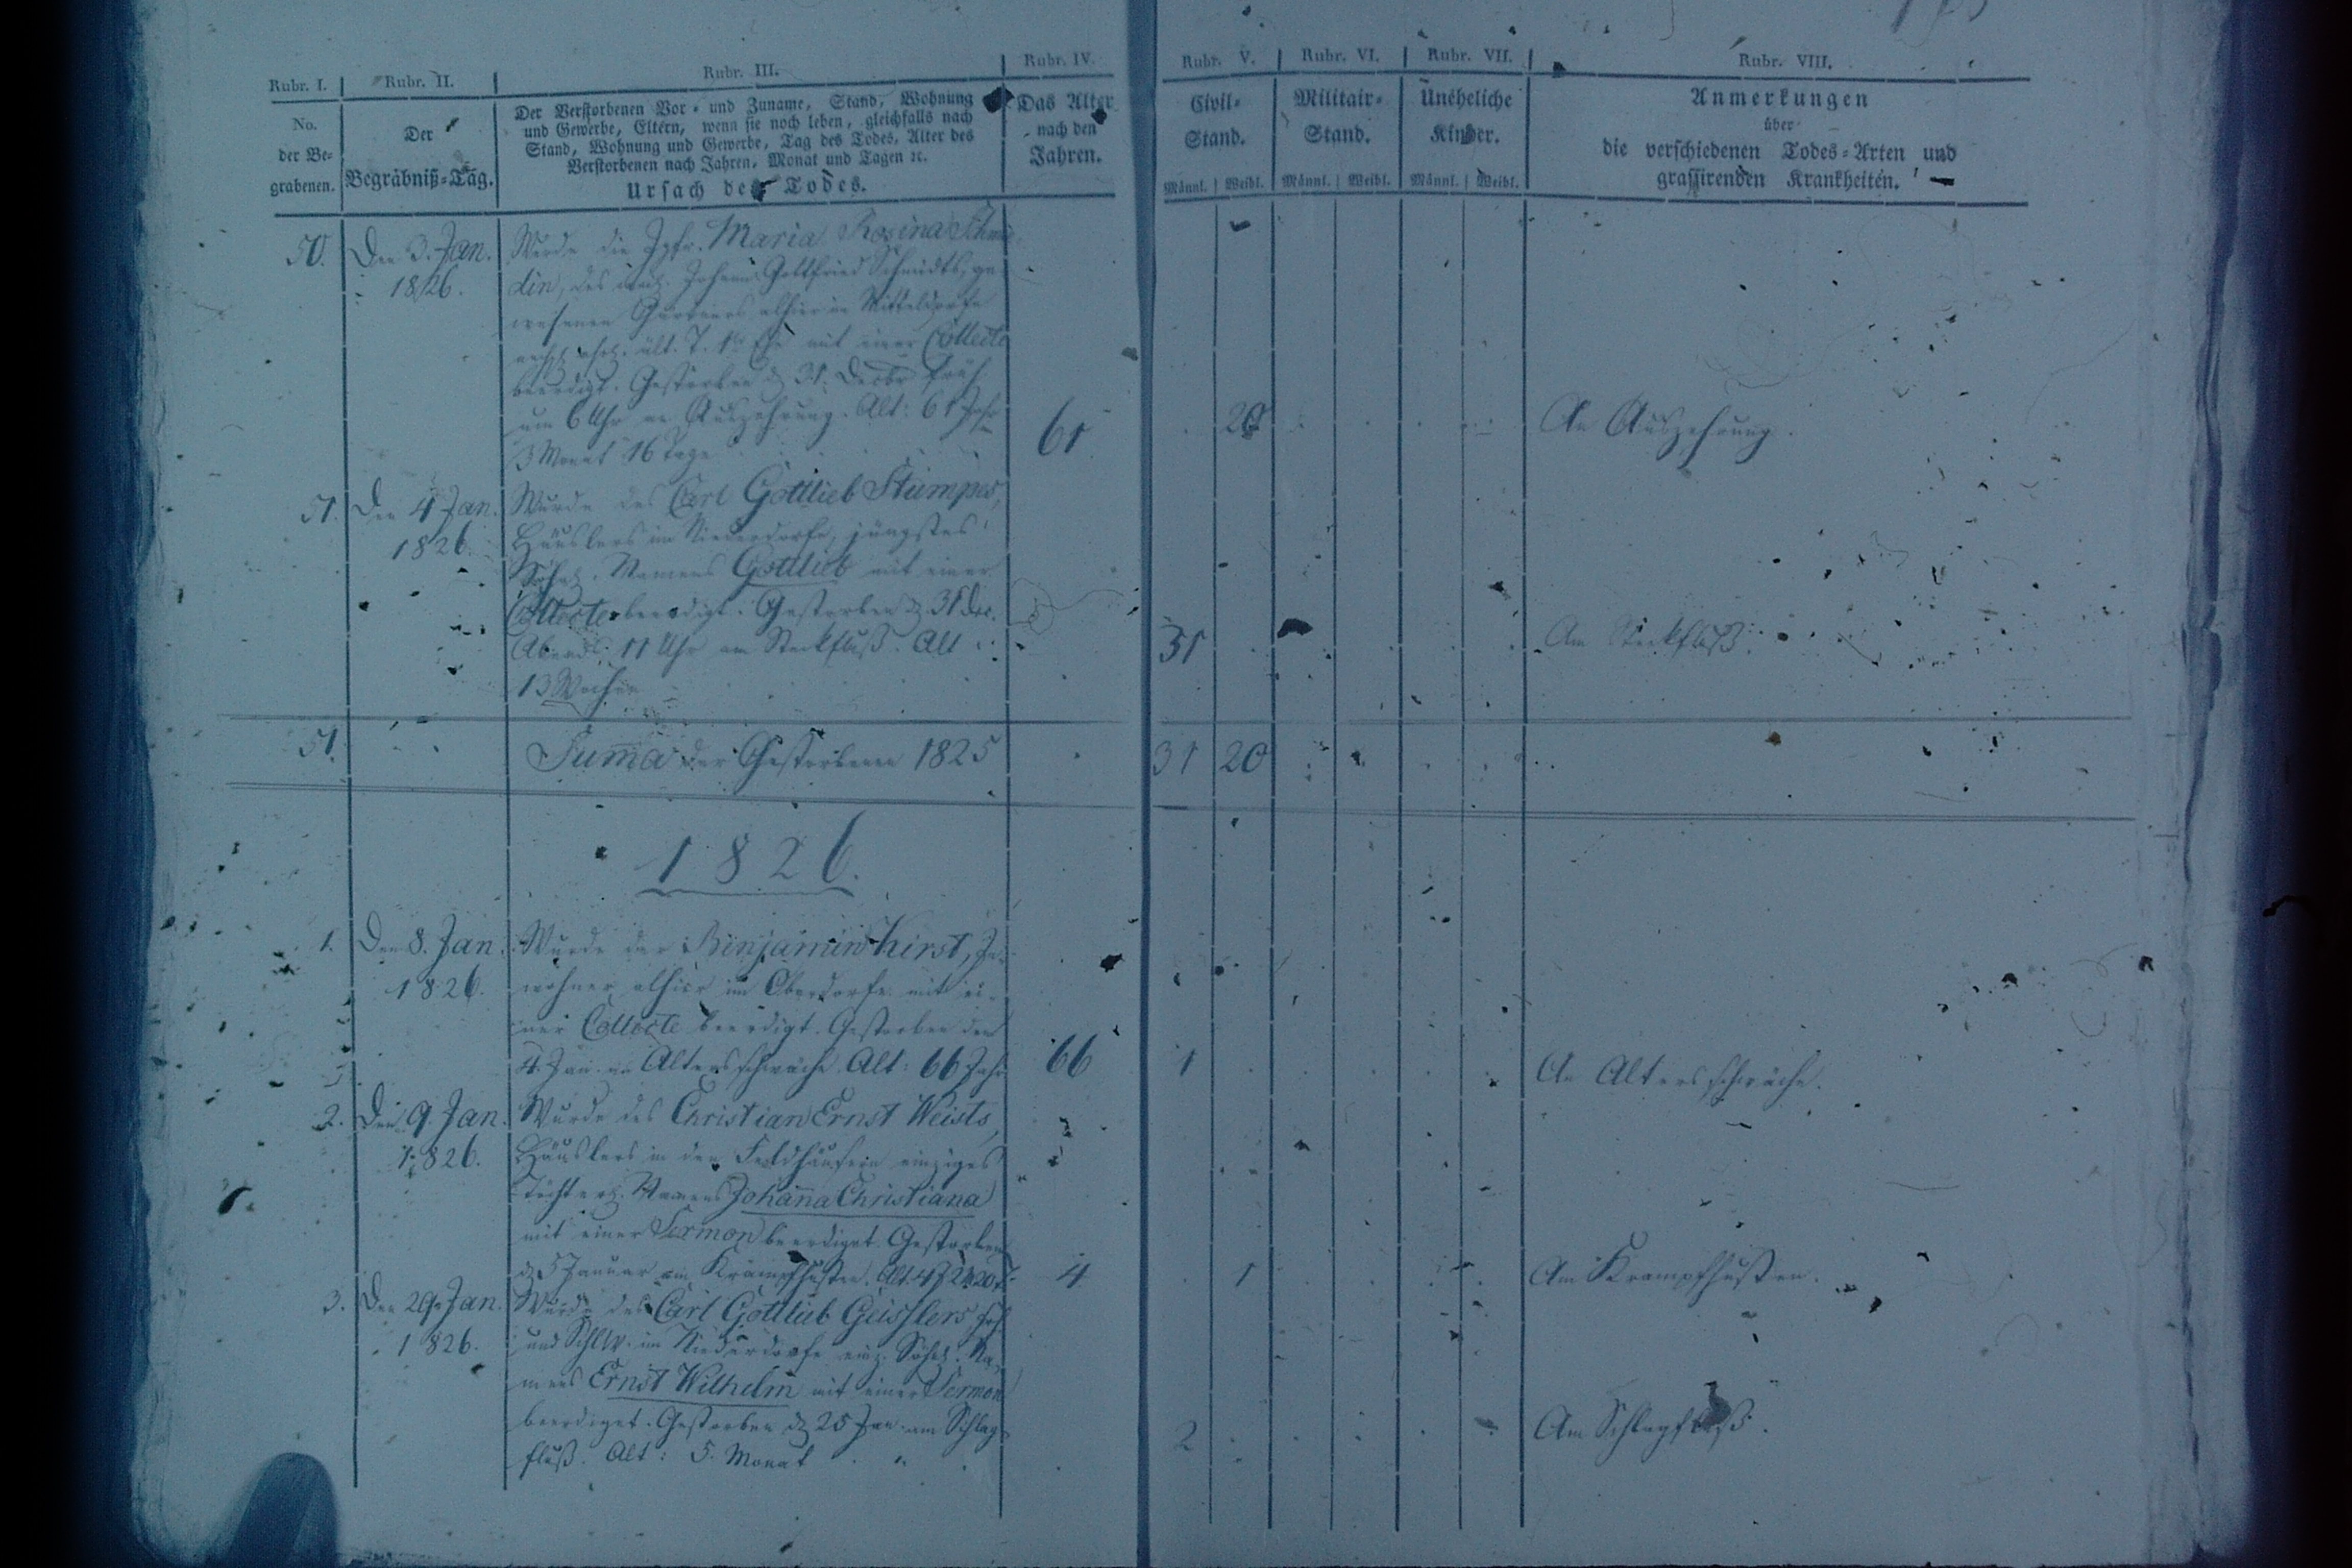 Rubr. I.
No.
der Be-
grabenen.
Rubr. II.
Der
Begräbniß-Tag.
Rubr. III.
Der Verstorbenen Vor- und Zuname, Stand, Wohnung
und Gewerbe, Eltern, wenn sie noch leben, gleichfalls nach
Stand, Wohnung und Gewerbe, Tag des Todes, Alter des
Verstorbenen nach Jahren, Monat und Tagen ꝛc.
Ursach des Todes.
Rubr. IV.
Das Alter
nach den
Jahren.
Rubr. V.
Civil-
Stand.
Männl. Weibl.
Rubr. VI.
Militair-
Stand.
Männl. Weibl.
Rubr. VII.
Uneheliche
Kinder.
Männl. Weibl.
Rubr. VIII.
Anmerkungen
über
die verschiedenen Todes-Arten und
grassirenden Krankheiten.
50.
Den 3. Jan.
1826.
Wurde die Jgfr. Maria Rosina
din, des Johann Gottfried Schmidts, ge-
wesenen Gärtners alhier im Mitteldorfe
ält. T. Ehe mit einer Collecte
beerdigt. Gestorben d. 31. Decbr früh
um 6 Uhr an Auszehrung. Alt: 61 Jahr
3 Monat 16 Tage
61
20
An Auszehrung.
51.
Den 4 Jan.
1826.
Wurde des Carl Gottlieb Stumpes,
Häuslers im Niederdorfe, jüngstes
Söhnl. Namens Gottlieb mit einer
Collecte beerdigt. Gestorben d. 31 Dec.
Abends 11 Uhr am Steckfluß. Alt:
13 Wochen
31
Am Steckfluß.
51.
Suma der Gestorbenen 1825
31 20
1826.
1.
Den 8. Jan.
1826.
Wurde der Benjamin Hirst, In-
wohner alhier im Oberdorfe mit ei-
ner Collecte beerdigt. Gestorben den
4. Jan. an Altersschwäche. Alt: 66 Jahr
66
1
An Altersschwäche.
2.
Den 9. Jan.
1826.
Wurde des Christian Ernst Weists,
Häuslers in den Feldhäusern einziges
Töchterl. Namens Johanna Christiana
mit einer Sermon beerdiget. Gestorben
d. 5 Januar am Krampfhusten. Alt. 4 J. 2 M. 20 T.
4
1
Am Krampfhusten.
3.
Den 29. Jan.
1826.
Wurde des Carl Gottlieb Geisslers,
und im Niederdorfe einz. Söhnl. Na-
mens Ernst Wilhelm mit einer Sermon
beerdiget. Gestorben d. 25 Jan. am Schlag-
fluß. Alt: 5. Monat
2
Am Schlagfluß.